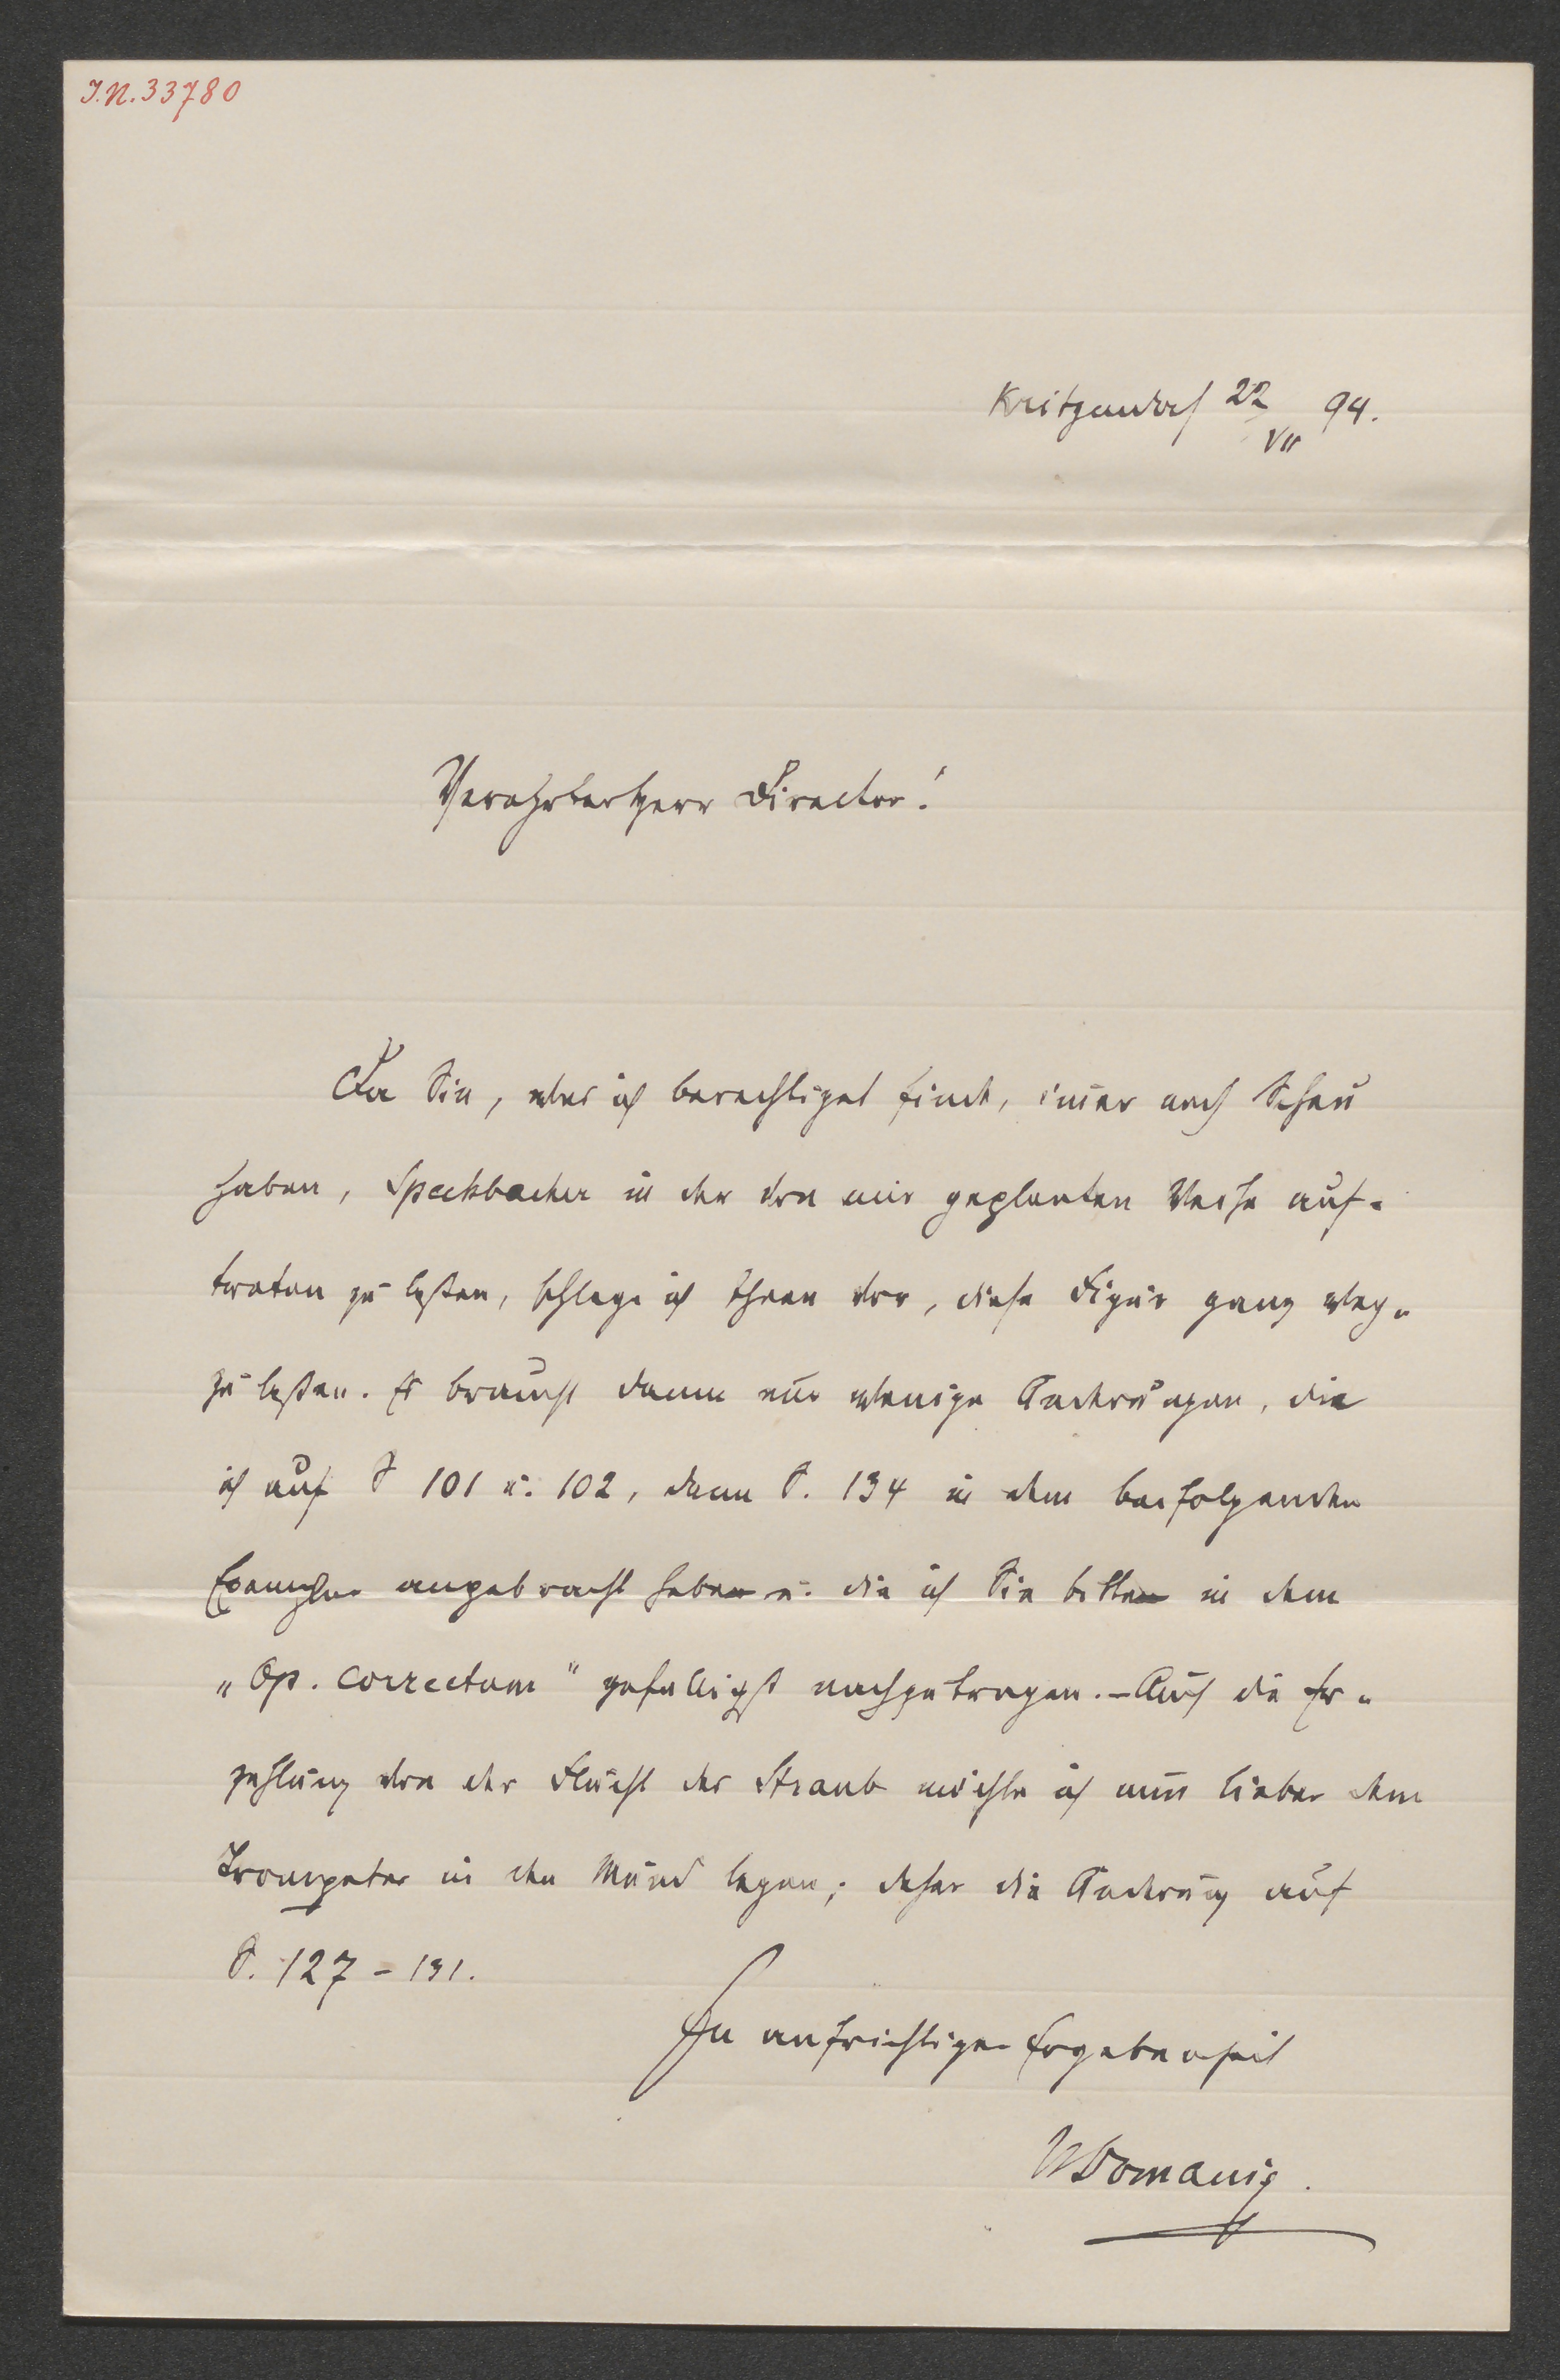 I.N. 33780
Kritzendorf 22/VII 94.
Verehrter Herr Director!
Da Sie, was ich berechtiget finde, im̄er noch Scheu
haben, Speckbacher in der von mir geplanten Weise auf-
treten zu lassen, schlage ich Ihnen vor, diese Figur ganz weg-
zu lassen. Es braucht dann nur wenige Änderungen, die
ich auf S 101 u. 102, dann S. 134 in dem beifolgenden
Exemplar angebracht habe u. die ich Sie bitte in dem
„Op. correctum“ gefälligst nachzutragen. – Auch die Er-
zählung von der Flucht der Straub möchte ich nun lieber dem
Trompeter in den Mund legen; daher die Änderung auf
S. 127 – 131.
In aufrichtiger Ergebenheit
KDomanig.